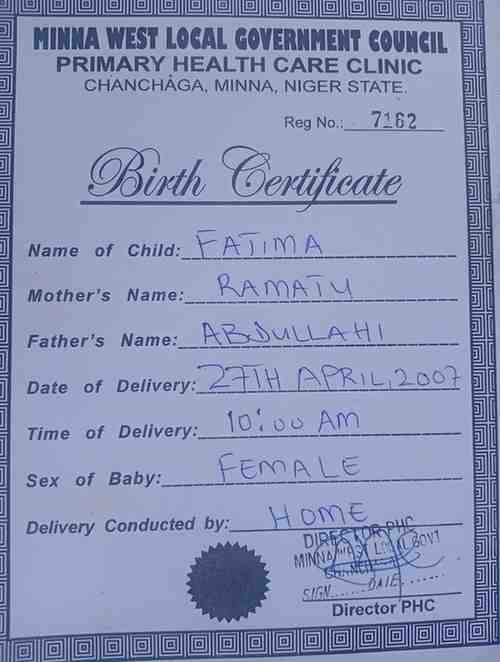 MINNA WEST LOCAL GOVERNMENT COUNCIL
PRIMARY HEALTH CARE CLINIC
CHANCHAGA, MINNA, NIGER STATE.
Reg No.: 7162
Birth Certificate
Name of Child: FATIMA
Mother's Name: RAMATU
Father's Name: ABDULLAHI
Date of Delivery: 27TH APRIL, 2007
Time of Delivery: 10:00 AM
Sex of Baby: FEMALE
Delivery Conducted by: HOME
DIRECTOR PHC
MINNA WEST LOCAL GOVT
SIGN.......DATE........
Director PHC